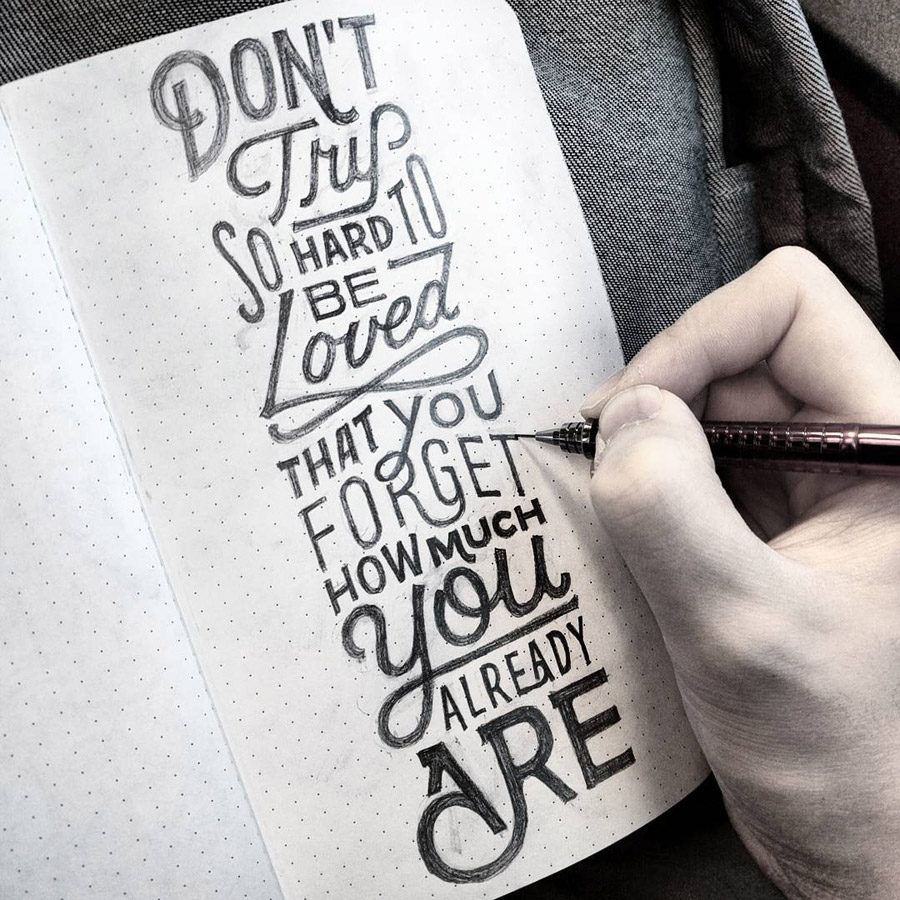 DON'T
Try
SO HARD TO
BE
Loved
THAT YOU
FORGET
HOW MUCH
you
ALREADY
ARE